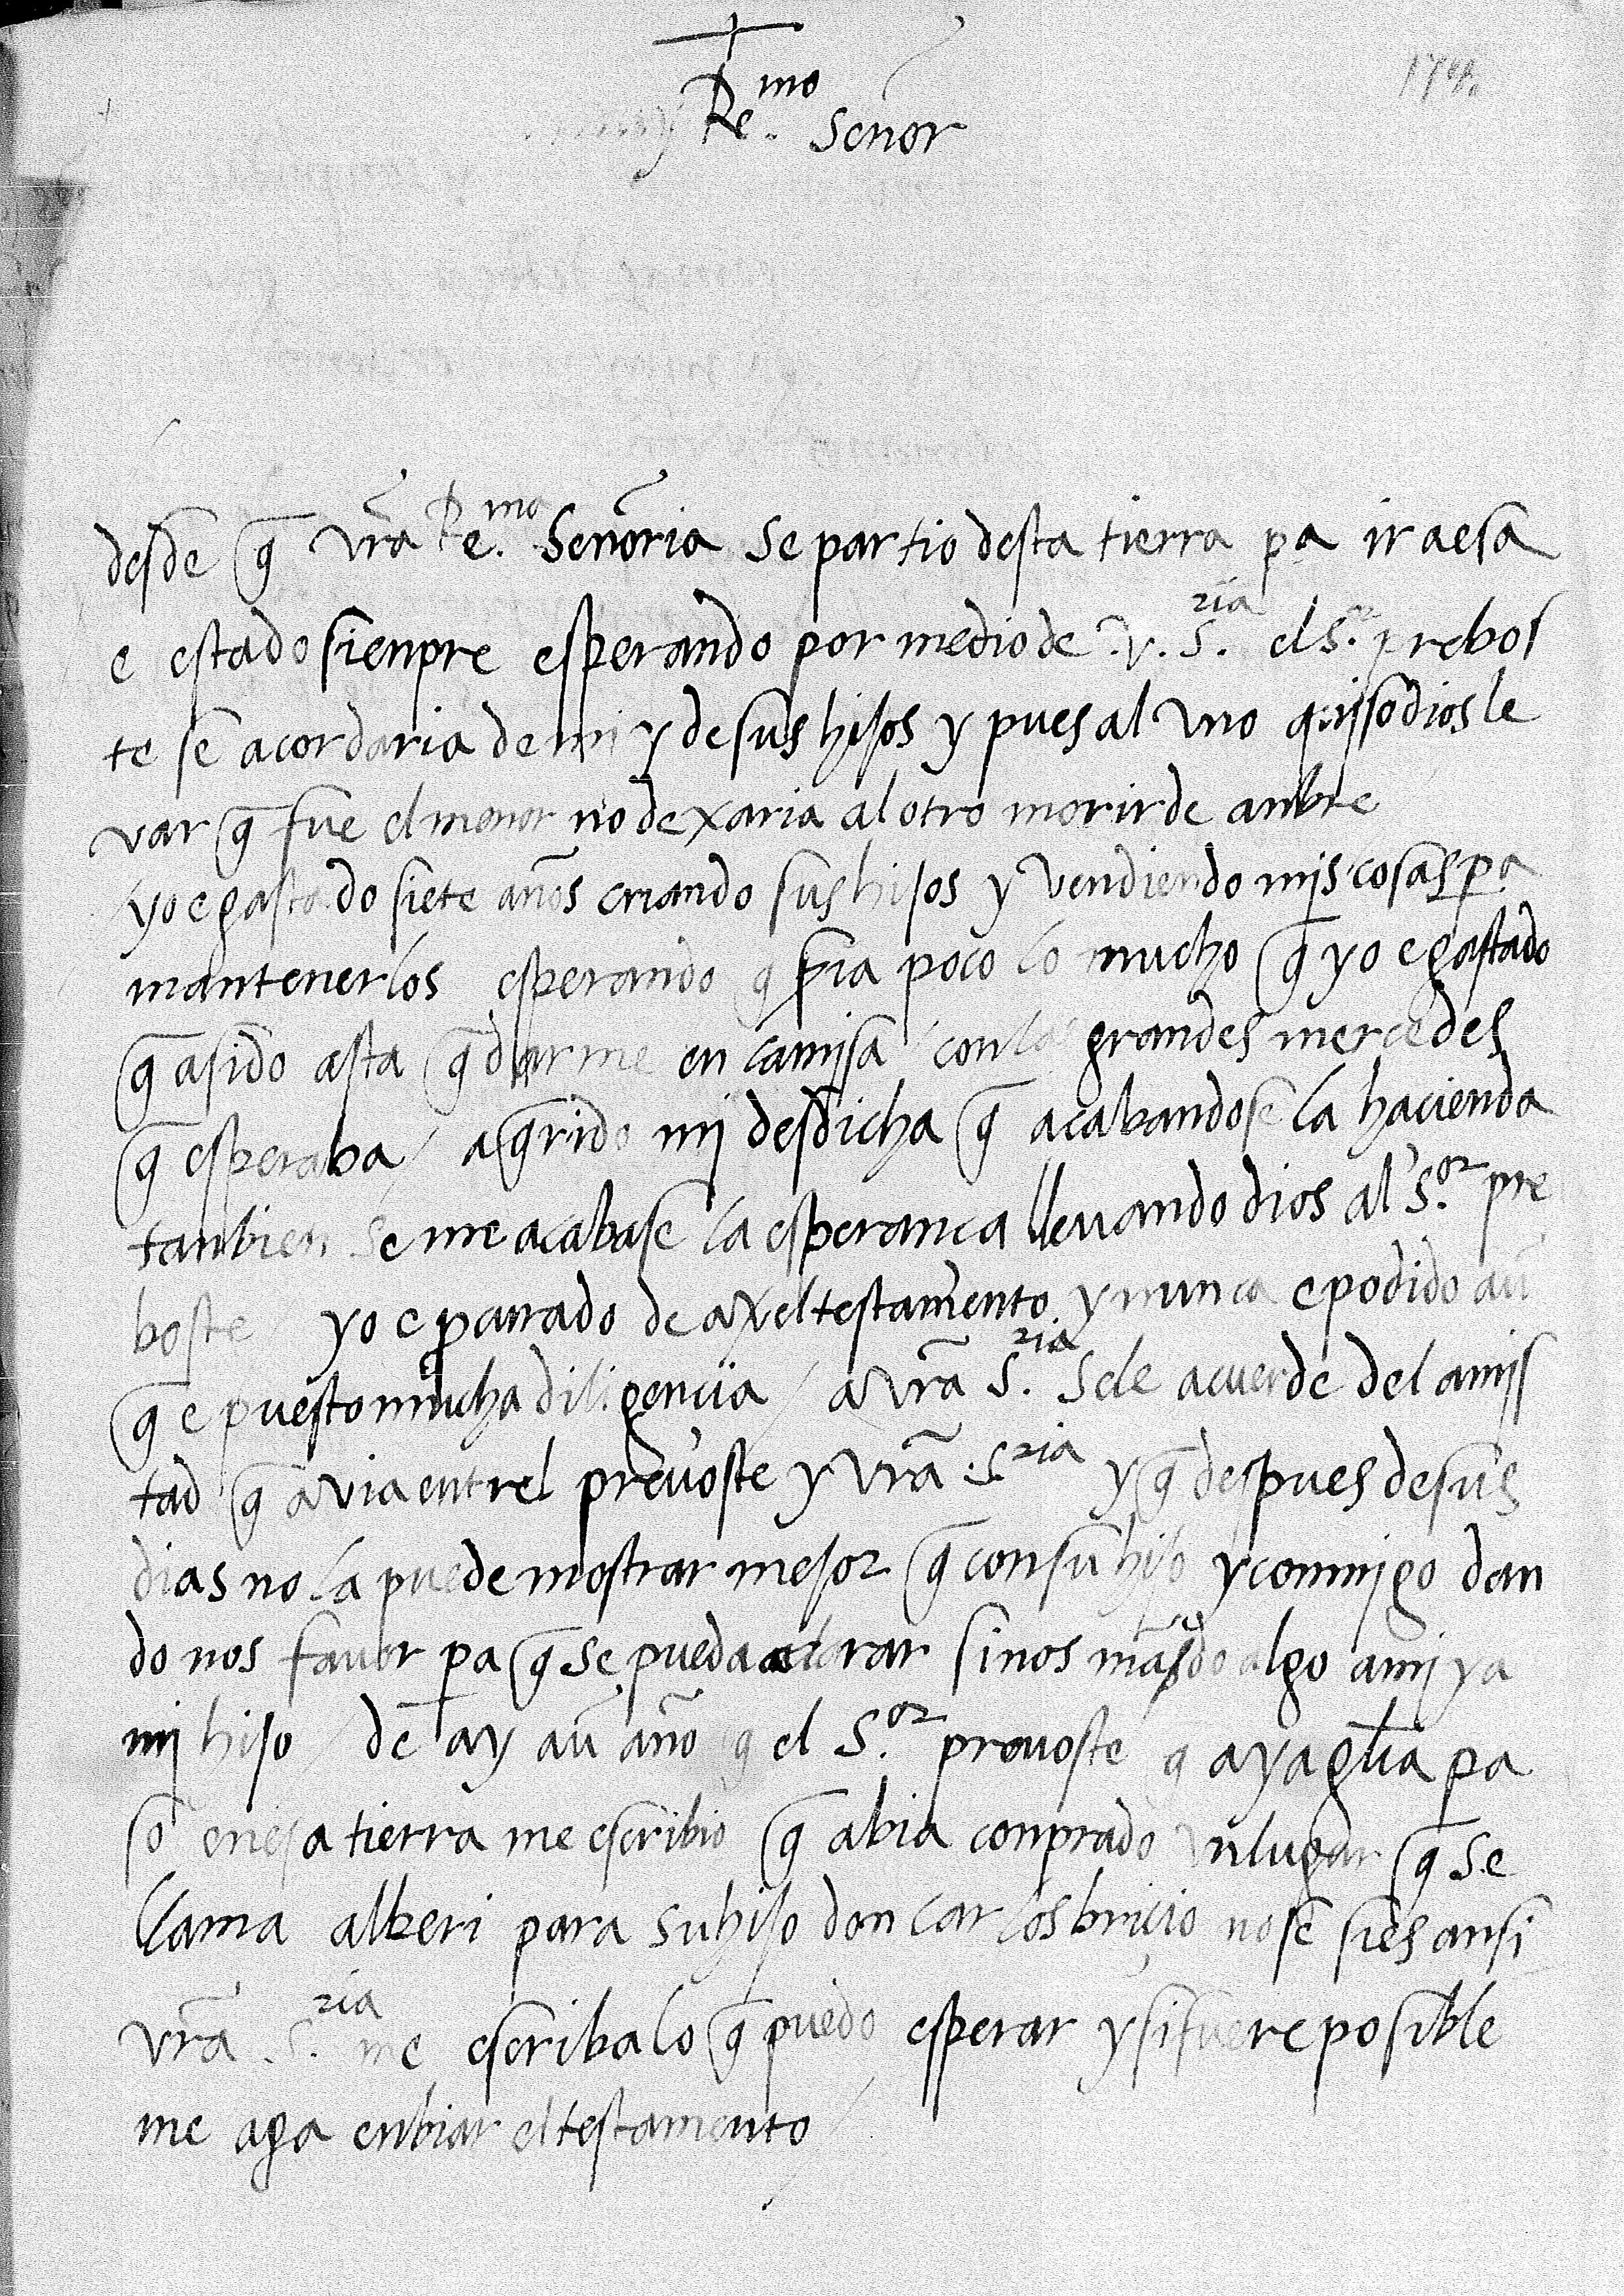 Re.mo Señor
desde q̃ vrã Re.mo Señoria se partio desta tierra pa ir a esa
e estado sienpre esperando por medio de .v. S.ria el s.or prebos
te se acordaria de mi y de sus hijos y pues al vno quiso dios le
var q̃ fue el menor no dexaria al otro morir de anbre
yo e gastado siete años criando sus hijos y vendiendo mis cosas pa
mantenerlos esperando q sria poco lo mucho q̃ yo e gastado
q̃ a sido asta q̃darme en camisa con las grandes mercedes
q̃ esperaba / a q̃rido mi desdicha q̃ acabandose la hacienda
tanbien se me acabase la esperanca llevando dios al S.or pre
boste / yo e procurado de aver el testamento y nunca e podido aũ
q̃ e puesto mucha diligencia / a vrã S.ria se le acuerde del amis
tad q̃ avia entrel prevoste y vrã S.ria y q̃ despues de sus
dias no la puede mostrar mejor q̃ con su hijo y conmigo dan
do nos favor pa q̃ se pueda aclarar si nos mãdo algo a mi y a
mi hijo / de ay aũ año q el S.or provoste q aya glia pa
so en esa tierra me escribio q̃ abia conprado vn lugar q̃ se
llama alberi para su hijo don carlos bricio no se si es ansi
vrã S.ria me escriba lo q̃ puedo esperar y si fuere posible
me aga enbiar el testamento /